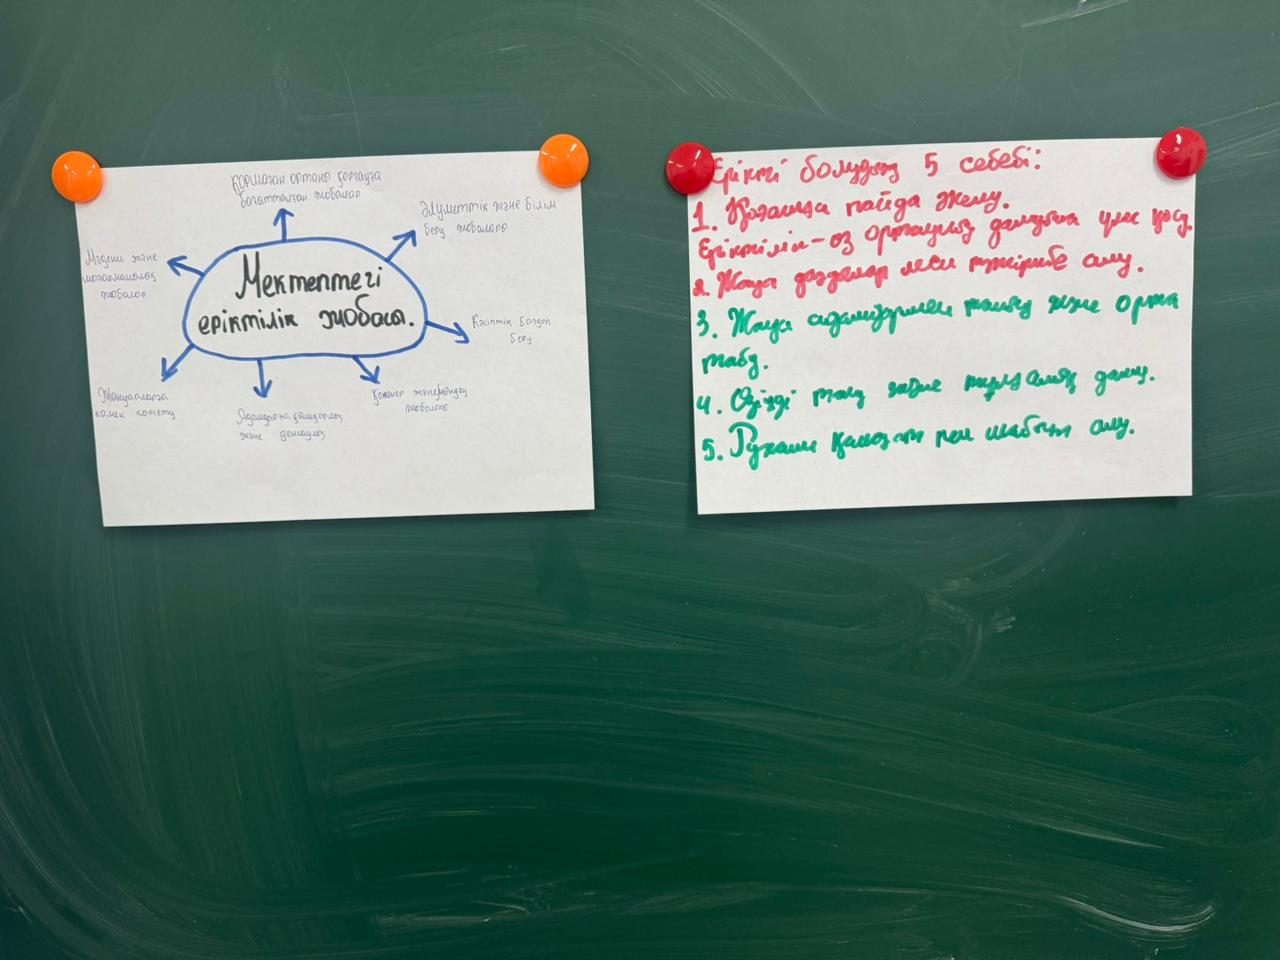 Қоршаған ортаны қорғауға
бағытталған жобалар
Әлуметтік және білім
беру жобалары
Мәдени және
шығармашылық
жобалар
Мектептегі
еріктілік жобасы.
Кәсіптік бағдар
беру
Жануарларға
көмек көрсету
Адамдарға қайырымдылық
және денсаулық
жобалары
Ерікті болудың 5 себебі:
1. Қоғамға пайда әкелу.
Еріктілік - өз ортаңның дамуына үлес қосу.
2. Жаңа дағдылар мен тәжірибе алу.
3. Жаңа адамдармен танысу және орта
табу.
4. Өзіңді тану және тұлғалық даму.
5. Рухани қанағат пен шабыт алу.